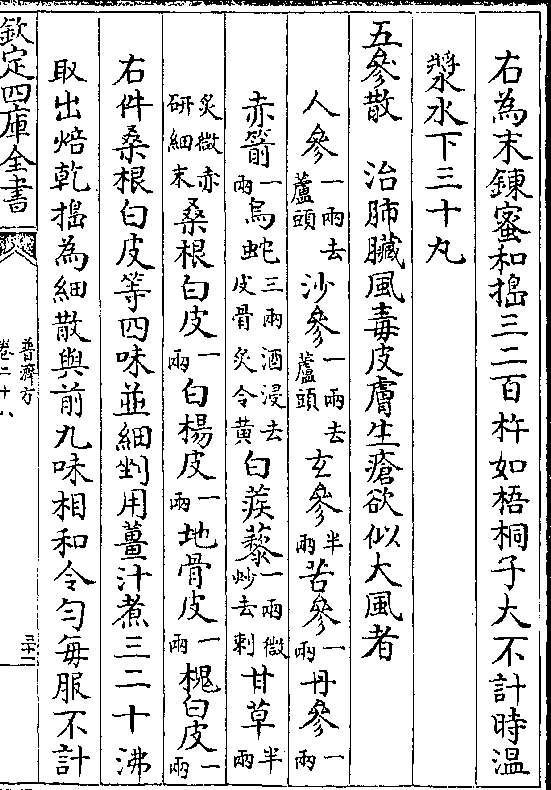 右為末鍊蜜和搗三二百杵如梧桐子大不計時溫
漿水下三十丸
五參散　治肺臟風毒皮膚生瘡欲似大風者
人參一兩去蘆頭沙參一兩去蘆頭玄參半兩苦參一兩丹參一兩
赤箭一兩烏蛇三兩酒浸去皮骨炙令黃白蒺藜一兩微炒去刺甘草半兩
炙微赤研細末桑根白皮一兩白楊皮一兩地骨皮一兩槐白皮一兩
右件桑根白皮等四味並細剉用薑汁煮三二十沸
取出焙乾搗為細散與前九味相和令勻每服不計
欽定四庫全書
普濟方
卷二十八